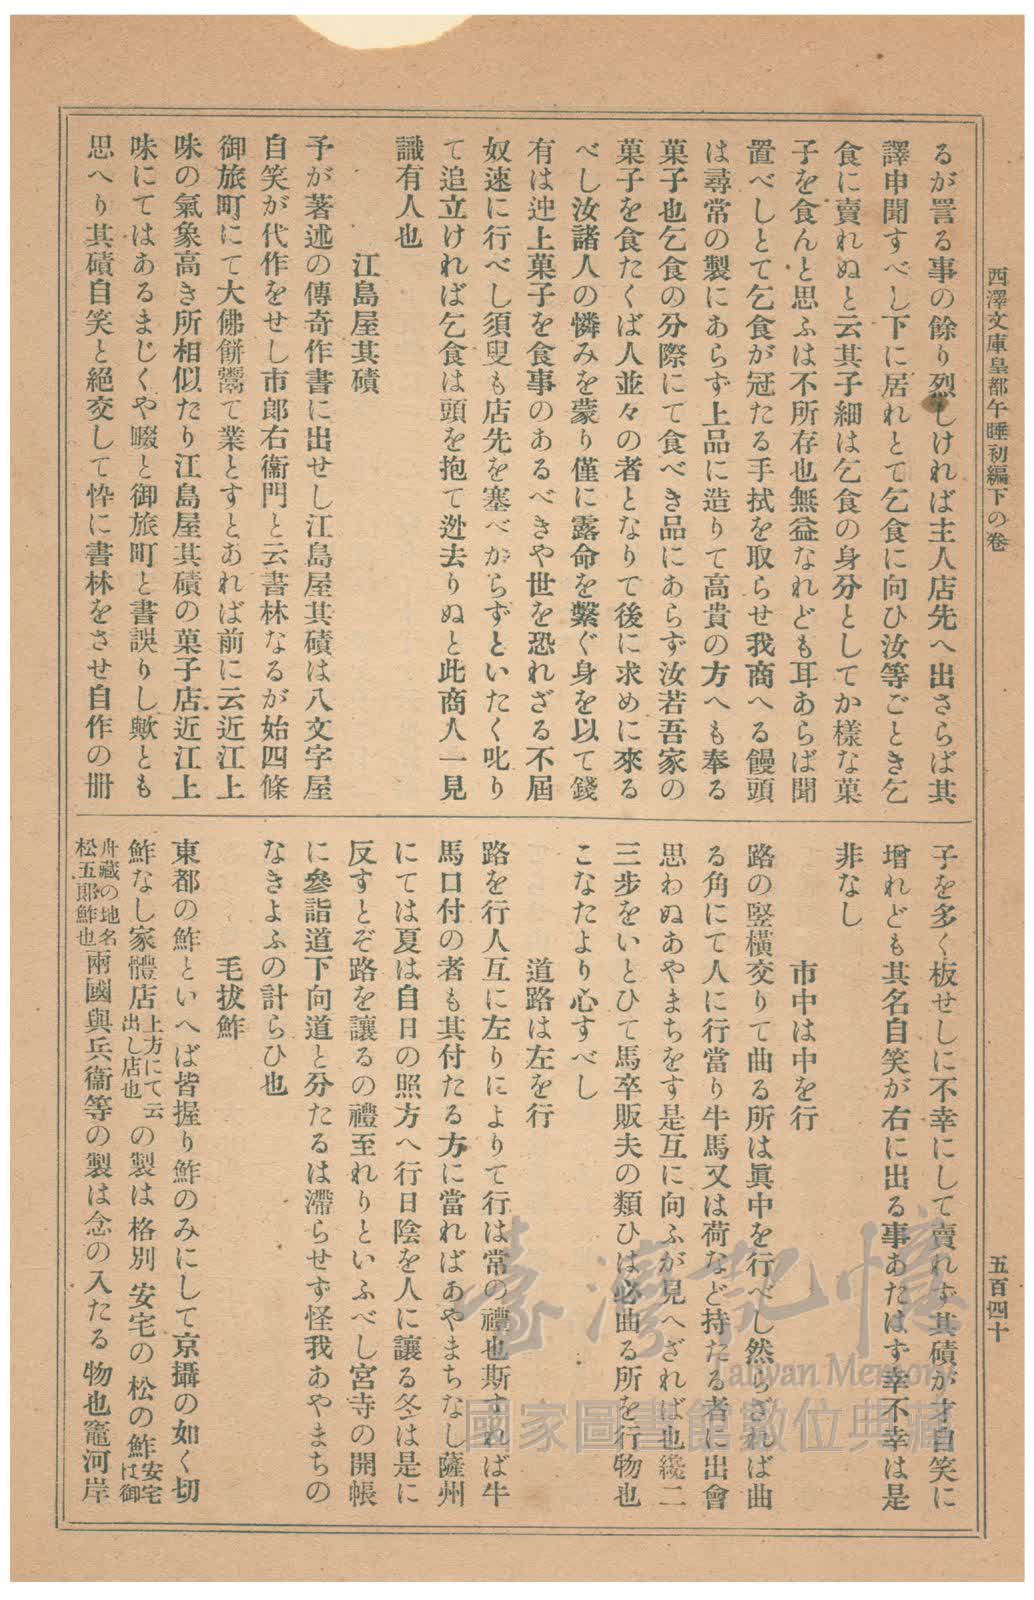 西澤文庫皇都午睡初編下の卷
五百四十
るが詈る事の餘り烈しければ主人店先へ出さらば其
譯申聞すべし下に居れとて乞食に向ひ汝等ごとき乞
食に賣れぬと云其子細は乞食の身分としてか樣な菓
子を食んと思ふは不所存也無益なれども耳あらば聞
置べしとて乞食が冠たる手拭を取らせ我商へる饅頭
は尋常の製にあらず上品に造りて高貴の方へも奉る
菓子也乞食の分際にて食べき品にあらず汝若吾家の
菓子を食たくば人並々の者となりて後に求めに來る
べし汝諸人の憐みを蒙り僅に露命を繫ぐ身を以て錢
有は迚上菓子を食事のあるべきや世を恐れざる不屆
奴速に行べし須臾も店先を塞べからずといたく叱り
て追立ければ乞食は頭を抱て迯去りぬと此商人一見
識有人也
江島屋其磧
予が著述の傳奇作書に出せし江島屋其磧は八文字屋
自笑が代作をせし市郎右衞門と云書林なるが始四條
御旅町にて大佛餅鬻て業とすとあれば前に云近江上
味の氣象高き所相似たり江島屋其磧の菓子店近江上
味にてはあるまじくや畷と御旅町と書誤りし歟とも
思へり其磧自笑と絕交して忰に書林をさせ自作の册
子を多く板せしに不幸にして賣れず其磧が才自笑に
增れども其名自笑が右に出る事あたはず幸不幸は是
非なし
市中は中を行
路の竪橫交りて曲る所は眞中を行べし然らざれば曲
る角にて人に行當り牛馬又は荷など持たる者に出會
思わぬあやまちをす是互に向ふが見へざれば也纔二
三步をいとひて馬卒販夫の類ひは必曲る所を行物也
こなたより心すべし
道路は左を行
路を行人互に左りによりて行は常の禮也斯すれば牛
馬口付の者も其付たる方に當ればあやまちなし薩州
にては夏は自日の照方へ行日陰を人に讓る冬は是に
反すとぞ路を讓るの禮至れりといふべし宮寺の開帳
に參詣道下向道と分たるは滯らせず怪我あやまちの
なきよふの計らひ也
毛拔鮓
東都の鮓といへば皆握り鮓のみにして京攝の如く切
鮓なし家體店上方にて云出し店也の製は格別 安宅の 松の鮓安宅は御
舟藏の地名松五郞鮓也兩國與兵衞等の製は念の入たる 物也竈河岸
臺灣記憶
Taiwan Memory
國家圖書館數位典藏